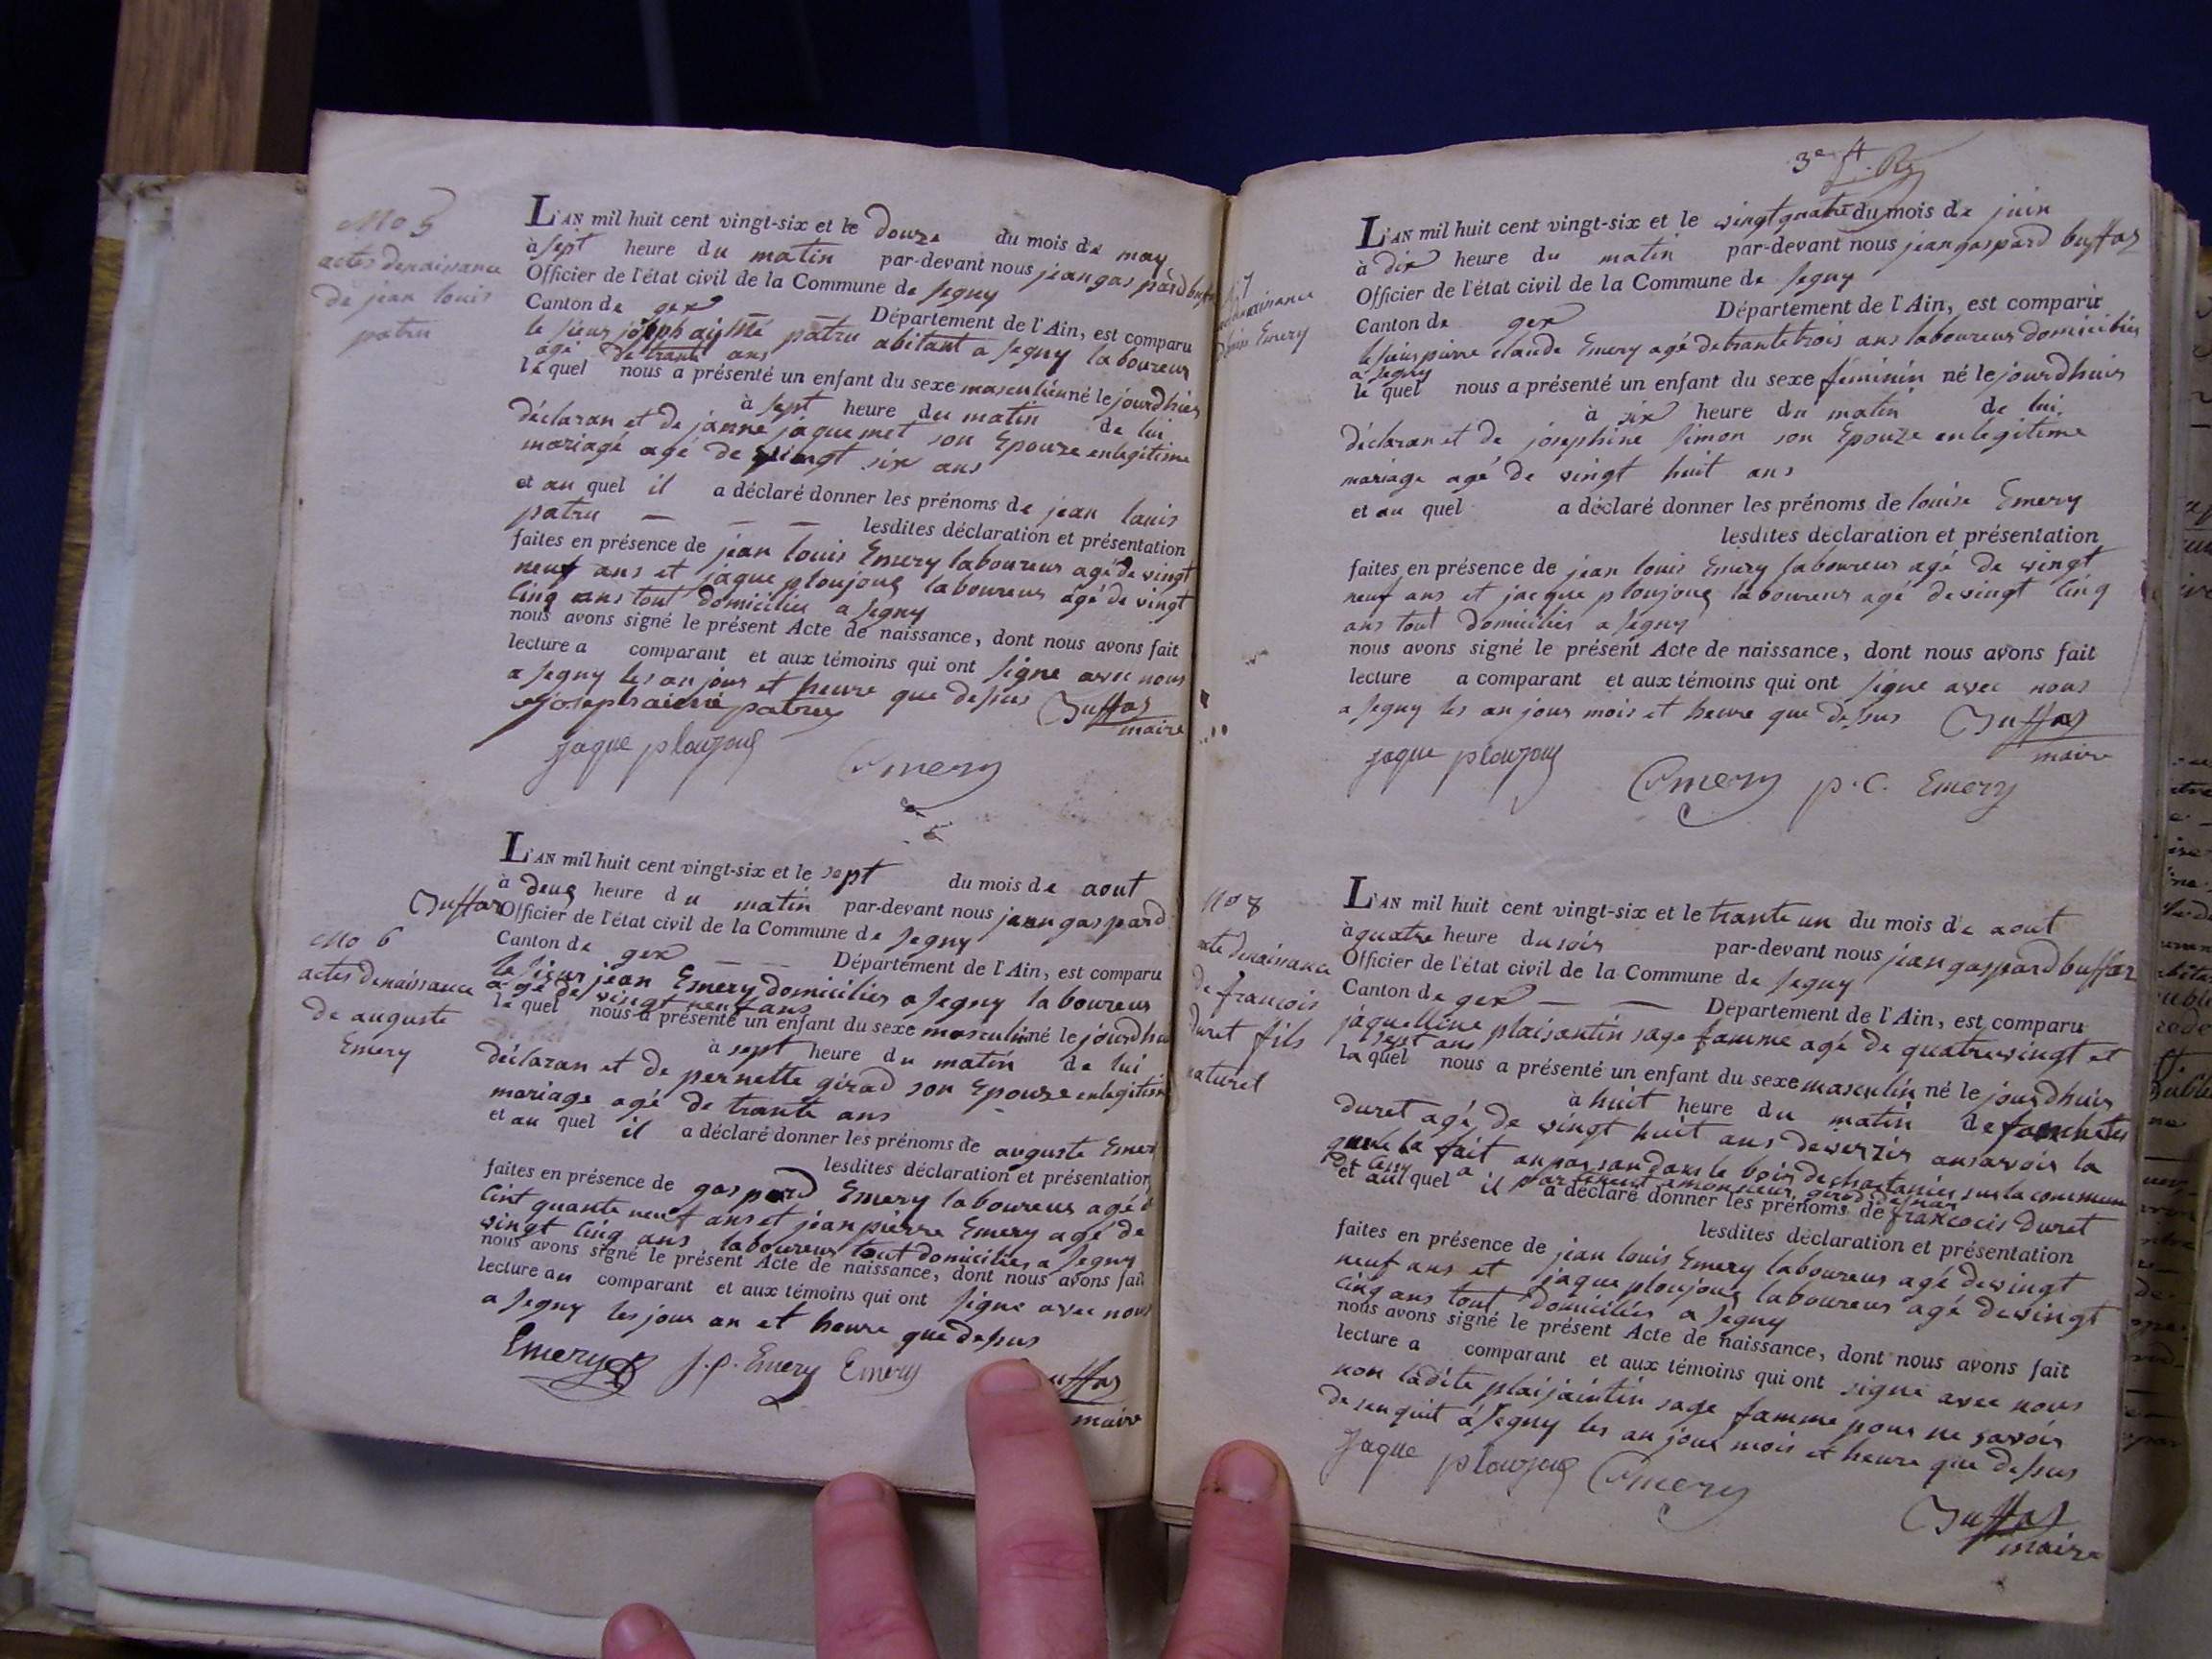 No 5
actes denaissance
de jean louis
patru
L'AN mil huit cent vingt-six et le douze du mois de may
à sept heure du matin par-devant nous jean gaspard
Officier de l'état civil de la Commune de segny
Canton de gex — — Département de l'Ain, est comparu
le sieur joseph aimé patru abitant a segny laboureur
agé de trante ans
le quel nous a présenté un enfant du sexe masculin né le jourdhuis
à sept heure du matin de lui
déclaran et de janne jaquemet son Epouze enlegitime
mariagé agé de vingt six ans
et au quel il a déclaré donner les prénoms de jean louis
patru — — — lesdites déclaration et présentation
faites en présence de jean louis Emery laboureur agé de vingt
neuf ans et jaque ploujoug laboureur agé de vingt
Cinq ans tout domicilié a segny
nous avons signé le présent Acte de naissance, dont nous avons fait
lecture a comparant et aux témoins qui ont signe avec nous
a segny les an jour et heure que dessus Buffaz
maire
joseph aimé patru
jaque ploujoug Emery
Buffaz
No 6
actes denaissance
de auguste
Emery
L'AN mil huit cent vingt-six et le sept du mois de aout
à deug heure du matin par-devant nous jean gaspard
Officier de l'état civil de la Commune de segny
Canton de gex — — Département de l'Ain, est comparu
le sieur jean Emery domicilier a segny laboureur
agé de vingt neuf ans
le quel nous a présenté un enfant du sexe masculin né le
à sept heure du matin de lui
déclaran et de pernette girod son Epouze
mariage agé de trante ans
et au quel il a déclaré donner les prénoms de auguste
lesdites déclaration et présentation
faites en présence de gaspard Emery laboureur agé
Cint quante neuf ans et jean pierre Emery agé de
vingt Cinq ans laboureur tout domicilier a segny
nous avons signé le présent Acte de naissance, dont nous avons fait
lecture au comparant et aux témoins qui ont signe avec nous
a segny les jour an et heure que dessus
Emery J.P. Emery Emery
maire
3e ft
naissance
Emery
L'AN mil huit cent vingt-six et le vingtquatre du mois de juin
à dix heure du matin par-devant nous jean gaspard buffaz
Officier de l'état civil de la Commune de segny
Canton de gex Département de l'Ain, est comparu
le sieur pierre claude Emery agé detrantetrois ans laboureur domicilier
a segny
le quel nous a présenté un enfant du sexe féminin né le jourdhuis
à six heure du matin de lui
déclaran et de josephine simon son Epouze enlegitime
mariage agé de vingt huit ans
et au quel a déclaré donner les prénoms de louise Emery
lesdites déclaration et présentation
faites en présence de jean louis Emery laboureur agé de vingt
neuf ans et jacque ploujoug laboureur agé devingt Cinq
ans tout domicilier a segny
nous avons signé le présent Acte de naissance, dont nous avons fait
lecture a comparant et aux témoins qui ont signe avec nous
a segny les an jour mois et heure que dessus Buffaz
maire
jaque ploujoug
Emery p.c. Emery
No 8
acte denaissance
de francois
duret fils
naturel
L'AN mil huit cent vingt-six et le trante un du mois de aout
à quatre heure du soir par-devant nous jean gaspard buffaz
Officier de l'état civil de la Commune de segny
Canton de gex — — Département de l'Ain, est comparu
jaquelline plaisantin sage famme agé de quatrevingt et
sept ans
la quel nous a présenté un enfant du sexe masculin né le jourdhuis
à huit heure du matin de
duret agé de vingt huit ans
et au quel il a déclaré donner les prénoms de francois duret
lesdites déclaration et présentation
faites en présence de jean louis Emery laboureur agé devingt
neuf ans et jaque ploujoug laboureur agé devingt
cinq ans tout domicilier a segny
nous avons signé le présent Acte de naissance, dont nous avons fait
lecture a comparant et aux témoins qui ont signe avec nous
non ladite plaijaintin sage famme pour ne savoir
de senquit à segny les an jour mois et heure que dessus
jaque ploujoug Emery
Buffaz
maire